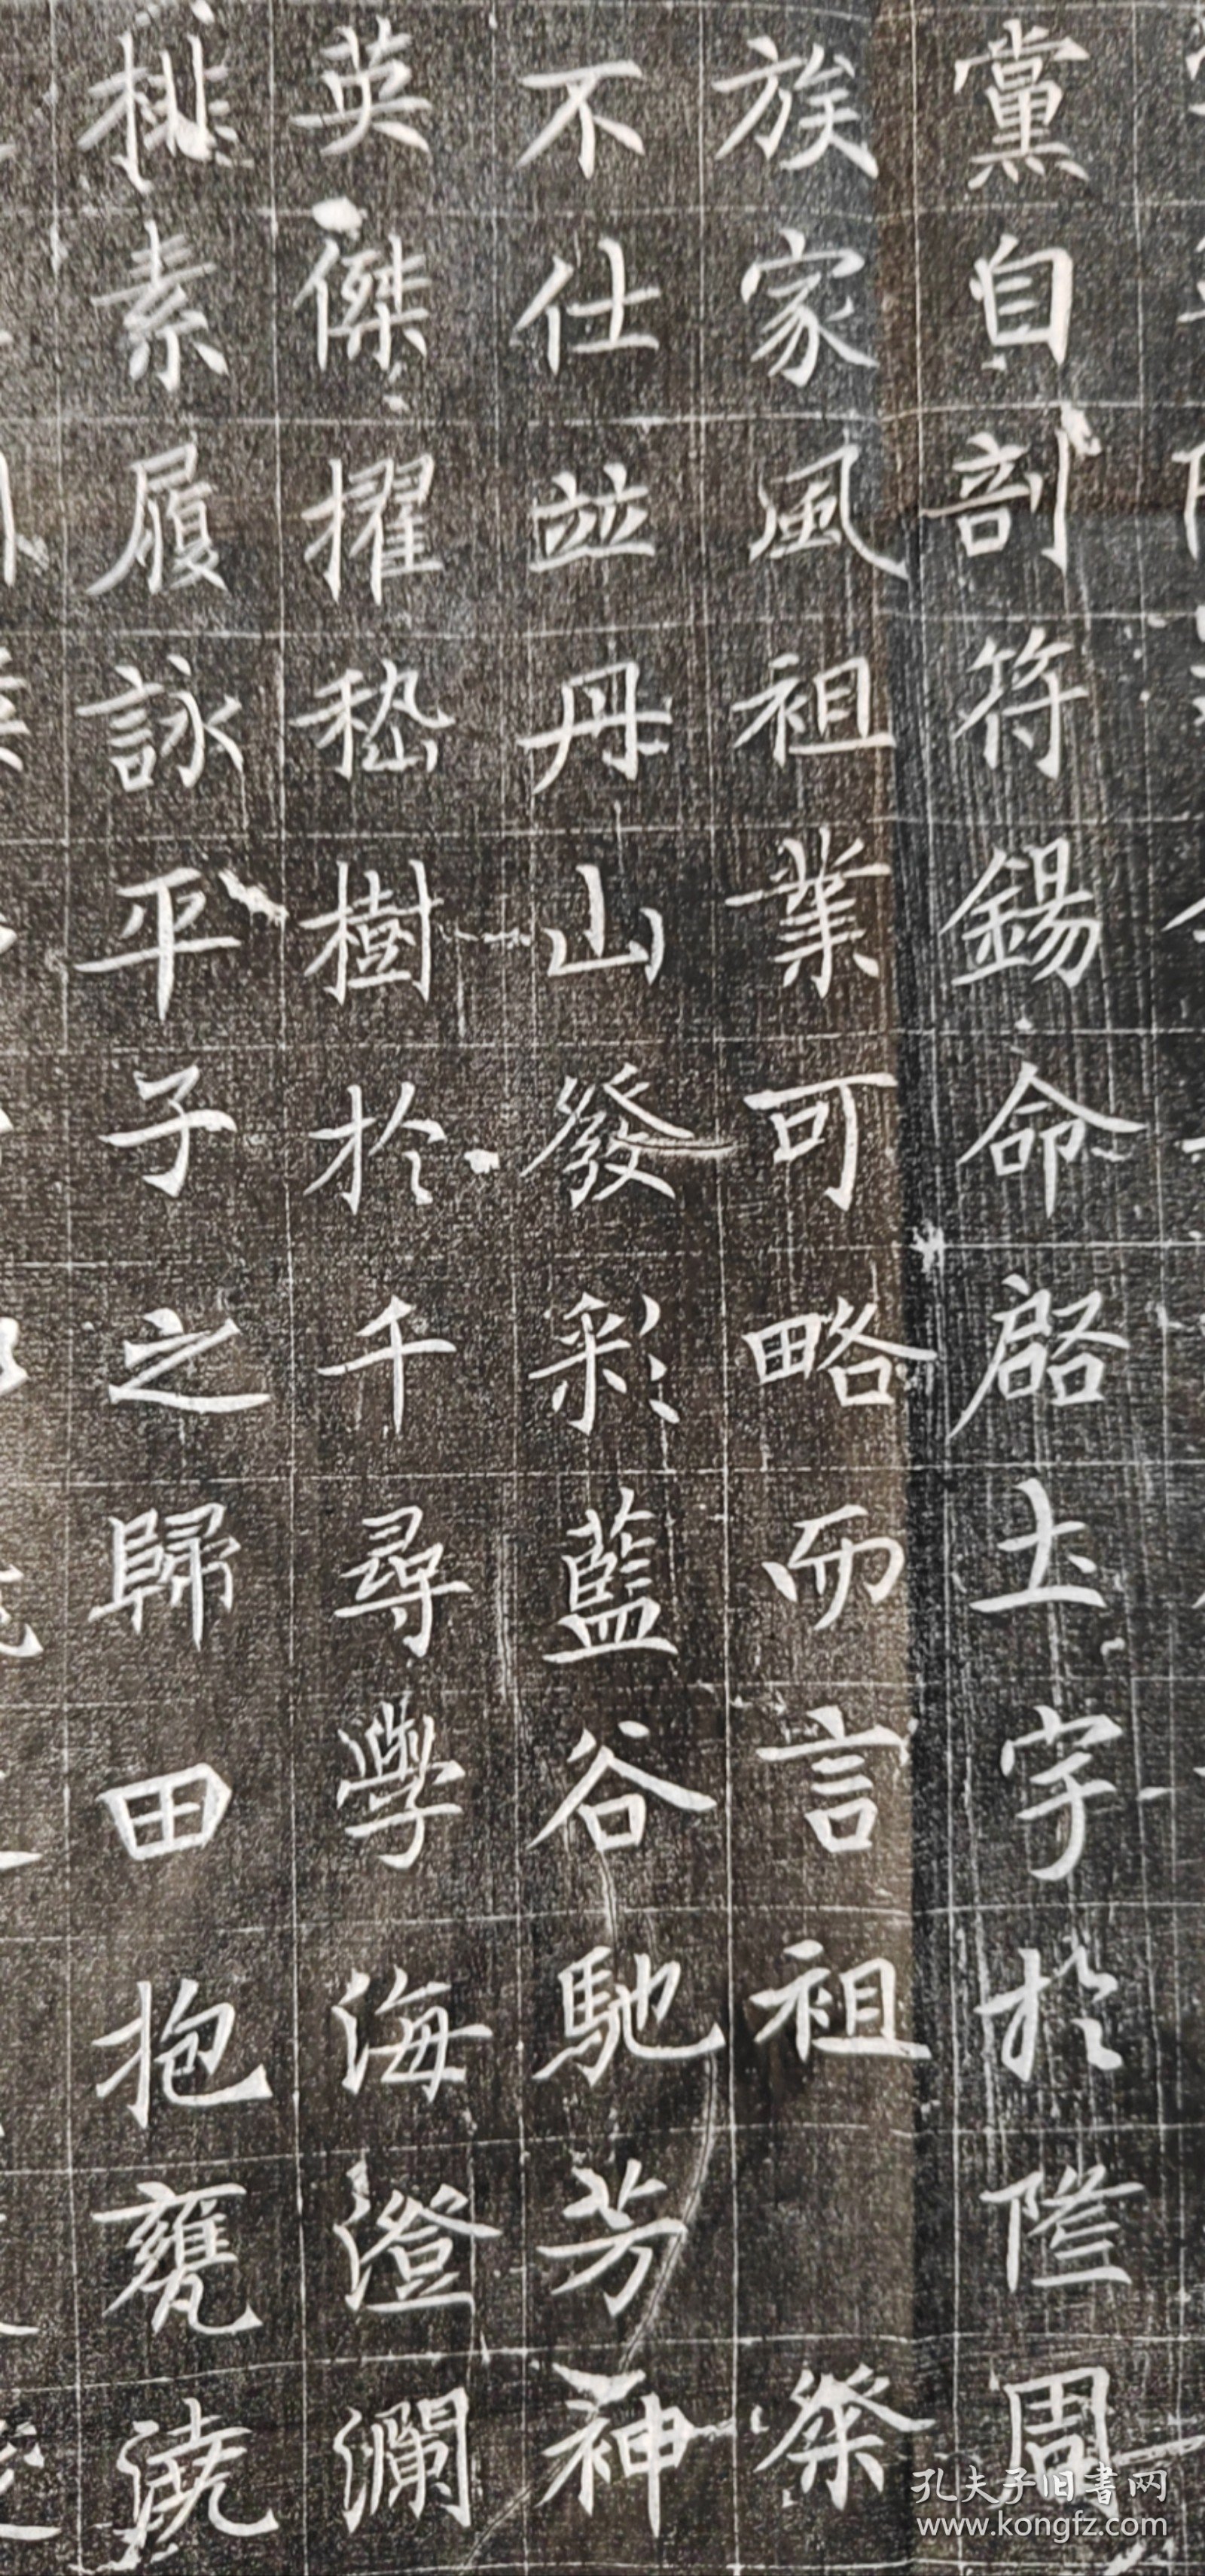 黨自剖符錫命啓土宇於隆周
族家風祖業可略而言祖 粲
不仕並丹山發彩藍谷馳芳神
英傑擢嵇樹於千尋學海澄瀾
桃素履詠平子之歸田抱甕澆
孔夫子旧书网
www.kongfz.com